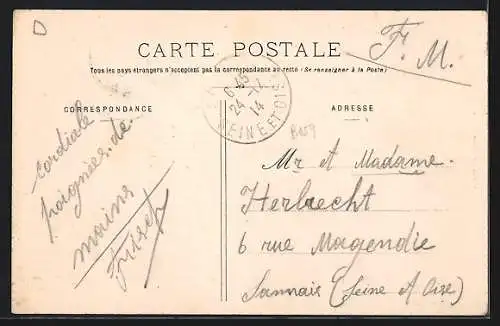 D
F. M.
CARTE POSTALE
Tous les pays étrangers n'acceptent pas la correspondance au recto (Se renseigner à la Poste)
6 45
24 - 11
14
SEINE ET OISE
CORRESPONDANCE
ADRESSE
cordiale
poignées de
mains
Mr et Madame.
Herbrecht
6 rue Magendie
Sannois (Seine et Oise)